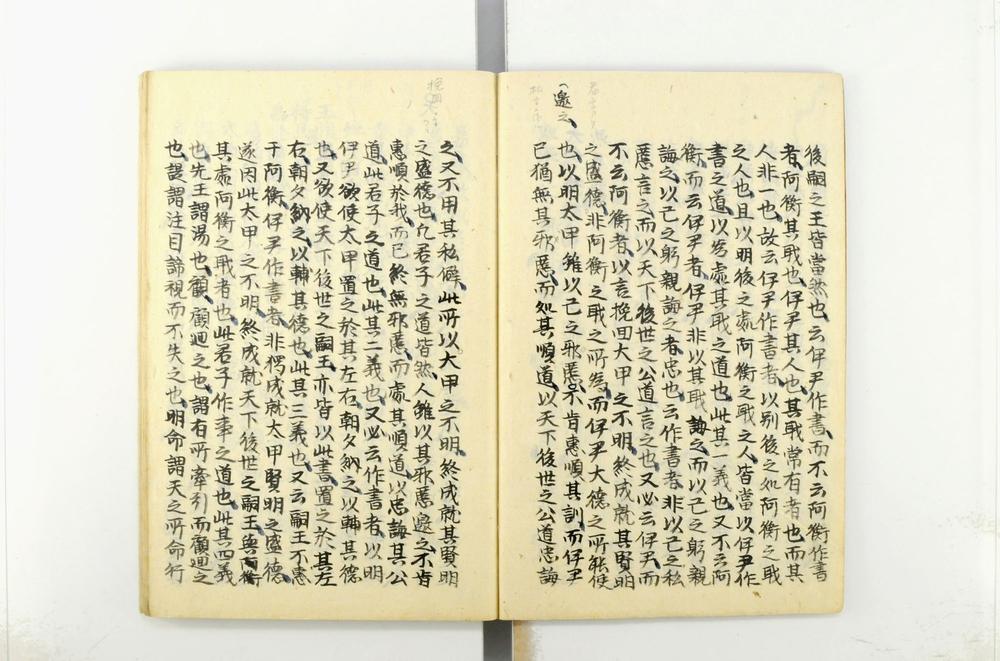 後嗣之王皆當然也云伊尹作書而不云阿衡作書
者阿衡其職也伊尹其人也其職常有者也而其
人非一也故云伊尹作書者以別後之如阿衡之職
之人也且以明後之處阿衡之職之人皆當以伊尹作
書之道以爲處其職之道也此其一義也又不云阿
衡而云伊尹者伊尹非以其職誨之而以己之躬親
誨之以己之躬親誨之者忠也云作書者非以己之私
慝言之而以天下後世之公道言之也又必云伊尹而
不云阿衡者以言挽回大甲之不明終成就其賢明
之盛德非阿衡之職之所爲而伊尹大德之所能使
也以明太甲雖以己之邪慝不肯惠順其訓而伊尹
已猶無其邪慝而処其順道以天下後世之公道忠誨
邀之
之又不用其私僻此所以大甲之不明終成就其賢明
之盛德也凡君子之道皆然人雖以其邪慝邀之不肯
惠順於我而已終無邪慝而處其順道以忠誨其公
道此君子之道也此其二義也又必云作書者以明
伊尹欲使太甲置之於其左右朝夕納之以輔其德
也又欲使天下後世之嗣王亦皆以此書置之於其左
右朝夕納之以輔其德也此其三義也又云嗣王不惠
于阿衡伊尹作書者非獨成就太甲賢明之盛德
遂因此太甲之不明終成就天下後世之嗣王與阿衡
其處阿衡之職者也此君子作事之道也此其四義
也先王謂湯也顧顧迴之也謂有所牽引而顧迴之
也諟謂注目諦視而不失之也明命謂天之所命行